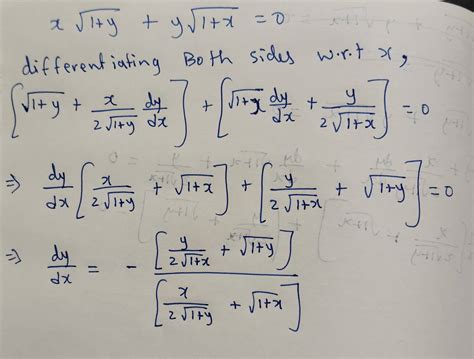 x √1+y + y √1+x = 0
differentiating Both sides w.r.t x,
[√1+y + x/2√1+y dy/dx] + [√1+x dy/dx + y/2√1+x] = 0
⇒ dy/dx [x/2√1+y + √1+x] + [y/2√1+x + √1+y] = 0
⇒ dy/dx = - [y/2√1+x + √1+y] / [x/2√1+y + √1+x]